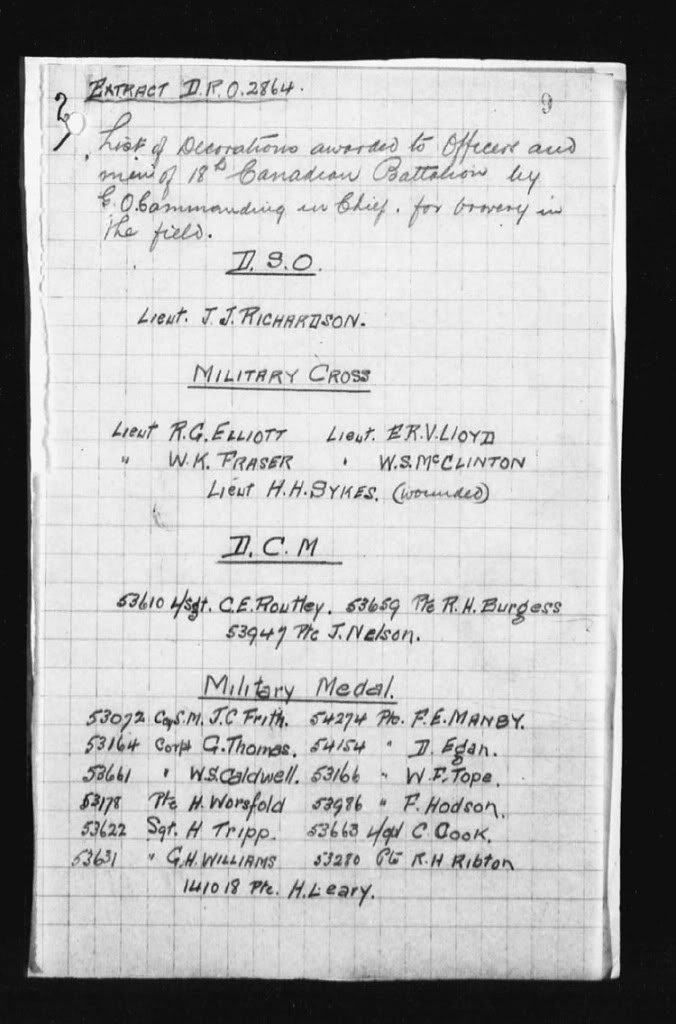 EXTRACT D.R.O. 2864.
9
2
List of Decorations awarded to Officers and
men of 18th Canadian Battalion by
G.O. Commanding in Chief. for bravery in
the field.
D.S.O.
Lieut. J.J. RICHARDSON.
MILITARY CROSS
Lieut R.G. ELLIOTT Lieut. E.R.V. LLOYD
" W.K. FRASER " W.S. McCLINTON
Lieut H.H. SYKES. (wounded)
D.C.M
53610 L/Sgt. C.E. Routley. 53659 Pte R.H. Burgess
53947 Pte J. Nelson.
Military Medal.
53072 Coy S.M. J.C Frith. 54274 Pte. F.E. MANBY.
53164 Corpl G. Thomas. 54154 " D. Egan.
53661 " W.S. Caldwell. 53166 " W.F. Tope.
53178 Pte H. Worsfold 53986 " F. Hodson.
53622 Sgt. H Tripp. 53663 L/Cpl C. Cook.
53631 " G.H. WILLIAMS 53280 Pte R.H Ribton
141018 Pte. H. Leary.